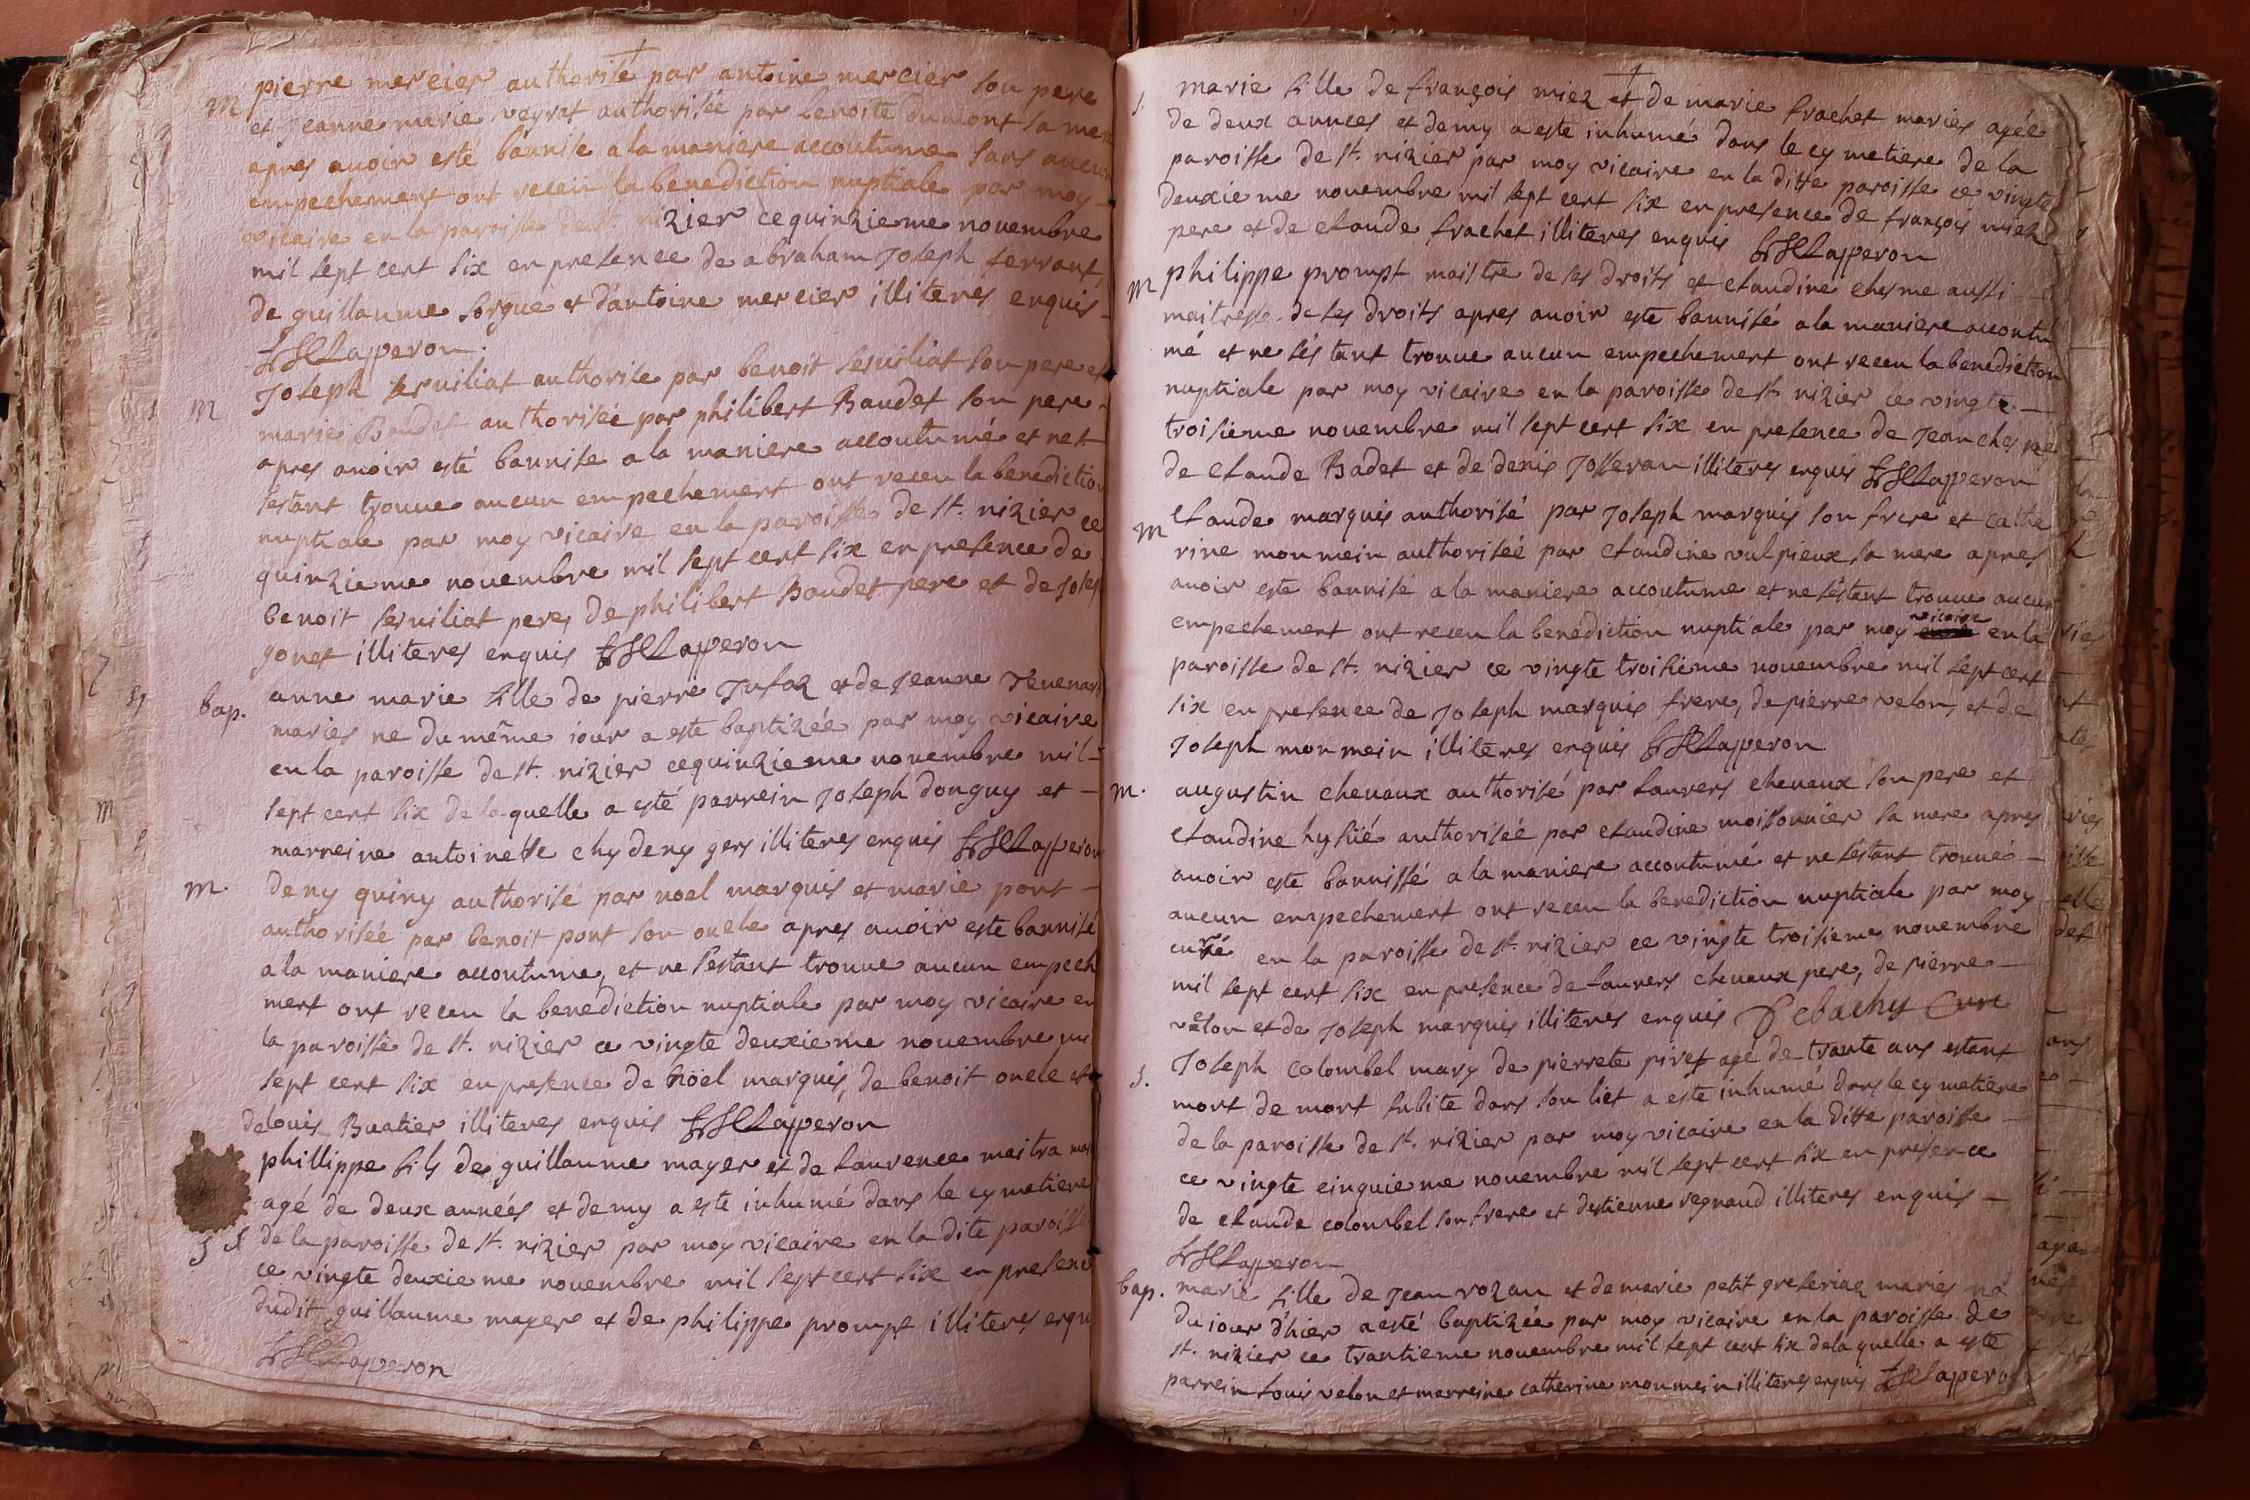 m pierre mercier authorisé par antoine mercier son pere
et Jeanne marie veyrat authorisée par benoite dumont sa mere
apres auoir esté bannise a la maniere accoutume sans aucun
empechement ont receu la benediction nuptiale par moy
vicaire en la paroisse de st. nizier ce quinzieme nouembre
mil sept cent six en presence de abraham Joseph ferrant,
de guillaume sorgue et d'antoine mercier illiteres enquis
Laperon
m Joseph seruiliat authorise par benoit seruiliat son pere et
marie Baudet authorisée par philibert Baudet son pere
apres auoir esté bannise a la maniere accoutumé et ne
sestant trouue aucun empechement ont receu la benediction
nuptiale par moy vicaire en la paroisse de st. nizier ce
quinzieme nouembre mil sept cent six en presence de
benoit seruiliat pere, de philibert Baudet pere et de Josep
gonet illiteres enquis Laperon
bap. anne marie fille de pierre Jufaz et de Jeanne
maries ne du même iour a este baptizée par moy vicaire
en la paroisse de st. nizier ce quinzieme nouembre mil
sept cent six de laquelle a esté parrein Joseph donguy et
marreine antoinette chydeny gers illiteres enquis Laperon
m. deny quiny authorisé par noel marquis et marie pont
authorisée par benoit pont son oncle apres auoir este bannisé
a la maniere accoutume, et ne sestant trouue aucun empeche
ment ont receu la benediction nuptiale par moy vicaire en
la paroisse de st. nizier ce vingte deuxieme nouembre mil
sept cent six en presence de Nöel marquis, de benoit oncle et
de louis Buatier illiteres enquis Laperon
phillippe fils de guillaume mayer et de Laurence maitra
agé de deux années et demy a este inhumé dans le cymetiere
S de la paroisse de st. nizier par moy vicaire en la dite paroisse
ce vingte deuxieme nouembre mil sept cent six en presence
dudit guillaume mayer et de philippe prompt illiteres enquis
Laperon
s. marie fille de françois miez et de marie frachet maries agée
de deux annees et demy a este inhumé dans le cymetiere de la
paroisse de st. nizier par moy vicaire en la ditte paroisse ce vingte
deuxieme nouembre mil sept cent six en presence de françois miez
pere et de claude frachet illiteres enquis Laperon
m philippe prompt maistre de ses droits et claudine chesme aussi
maitresse de ses droits apres auoir este bannisé a la maniere accoutu
mé et ne séstant trouue aucun empechement ont receu la benediction
nuptiale par moy vicaire en la paroisse de st nizier ce vingte
troisieme nouembre mil sept cent six en presence de Jean chesme
de claude Badet et de denis Josseran illiteres enquis Laperon
m claude marquis authorisé par Joseph marquis son frere et cathe
rine monmein authoriseé par claudine vulpieux sa mere apres
auoir este bannisé a la maniere accoutume et ne séstant trouue aucun
empechement ont receu la benédiction nuptiale par moy vicaire en la
paroisse de st. nizier ce vingte troisieme nouembre mil sept cent
six en presence de Joseph marquis frere, de pierre velon, et de
Joseph monmein illiteres enquis Laperon
m. augustin cheuaux authorisé par Laurens cheuaux son pere et
claudine authoriseé par claudine moissonnier sa mere apres
auoir este bannissé a la maniere accoutumé et ne sestant trouué
aucun empechement ont receu la benediction nuptiale par moy
curé en la paroisse de st. nizier ce vingte troisieme nouembre
mil sept cent six en presence de Laurens cheuaux pere, de pierre
velon et de Joseph marquis illiteres enquis Debachy Curé
s. Joseph colombel mary de pierrete piret agé de trante ans estant
mort de mort subite dans son liet a este inhumé dans le cymetiere
de la paroisse de st. nizier par moy vicaire en la ditte paroisse
ce vingte cinquieme nouembre mil sept cent six en presence
de claude colombel son frere et destienne regnaud illiteres enquis
Laperon
bap. marie fille de Jean rozan et de marie petit maries né
du iour d'hier a esté baptizée par moy vicaire en la paroisse de
st. nizier ce trantieme nouembre mil sept cent six de laquelle a este
parrein Louis velon et marreine catherine monmein illiteres enquis Laperon